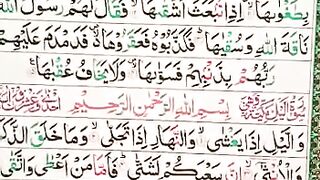 بِطَغْوٰىهَاۤ اِذِ انْۢبَعَثَ اَشْقٰىهَا فَقَالَ لَهُمْ رَسُوْلُ اللّٰهِ
نَاقَةَ اللّٰهِ وَ سُقْیٰهَا فَكَذَّبُوْهُ فَعَقَرُوْهَا فَدَمْدَمَ عَلَیْهِمْ
رَبُّهُمْ بِذَنْۢبِهِمْ فَسَوّٰىهَا وَ لَا یَخَافُ عُقْبٰهَا
بِسْمِ اللّٰهِ الرَّحْمٰنِ الرَّحِیْمِ
وَ الَّیْلِ اِذَا یَغْشٰى وَ النَّهَارِ اِذَا تَجَلّٰى وَ مَا خَلَقَ الذَّكَرَ
وَ الْاُنْثٰۤى اِنَّ سَعْیَكُمْ لَشَتّٰى فَاَمَّا مَنْ اَعْطٰى وَ اتَّقٰى